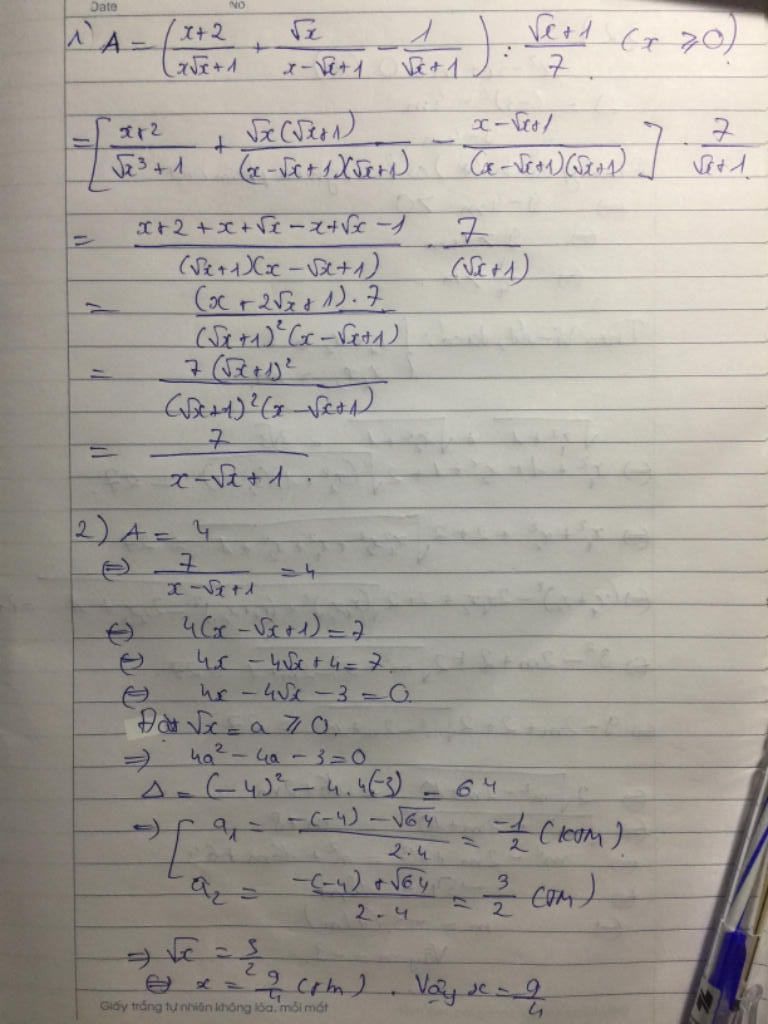 Date No
1) A = (x+2/x√x+1 + √x/x-√x+1 - 1/√x+1) : √x+1/7 (x ≥ 0)
= [x+2/√x³+1 + √x(√x+1)/(x-√x+1)(√x+1) - x-√x+1/(x-√x+1)(√x+1)] . 7/√x+1.
= x+2+x+√x-x+√x-1/(√x+1)(x-√x+1) . 7/(√x+1)
= (x+2√x+1).7/(√x+1)²(x-√x+1)
= 7(√x+1)²/(√x+1)²(x-√x+1)
= 7/x-√x+1.
2) A = 4
⇔ 7/x-√x+1 = 4
⇔ 4(x-√x+1) = 7
⇔ 4x - 4√x + 4 = 7.
⇔ 4x - 4√x - 3 = 0.
Đặt √x = a ≥ 0.
⇒ 4a² - 4a - 3 = 0
Δ = (-4)² - 4.4(-3) = 64
⇒ [ a₁ = -(-4) - √64/2.4 = -1/2 (ktm).
a₂ = -(-4) + √64/2.4 = 3/2 (tm)
⇒ √x = 3/2
⇔ x = 9/4 (tm). Vậy x = 9/4
Giấy trắng tự nhiên không lóa, mỏi mắt